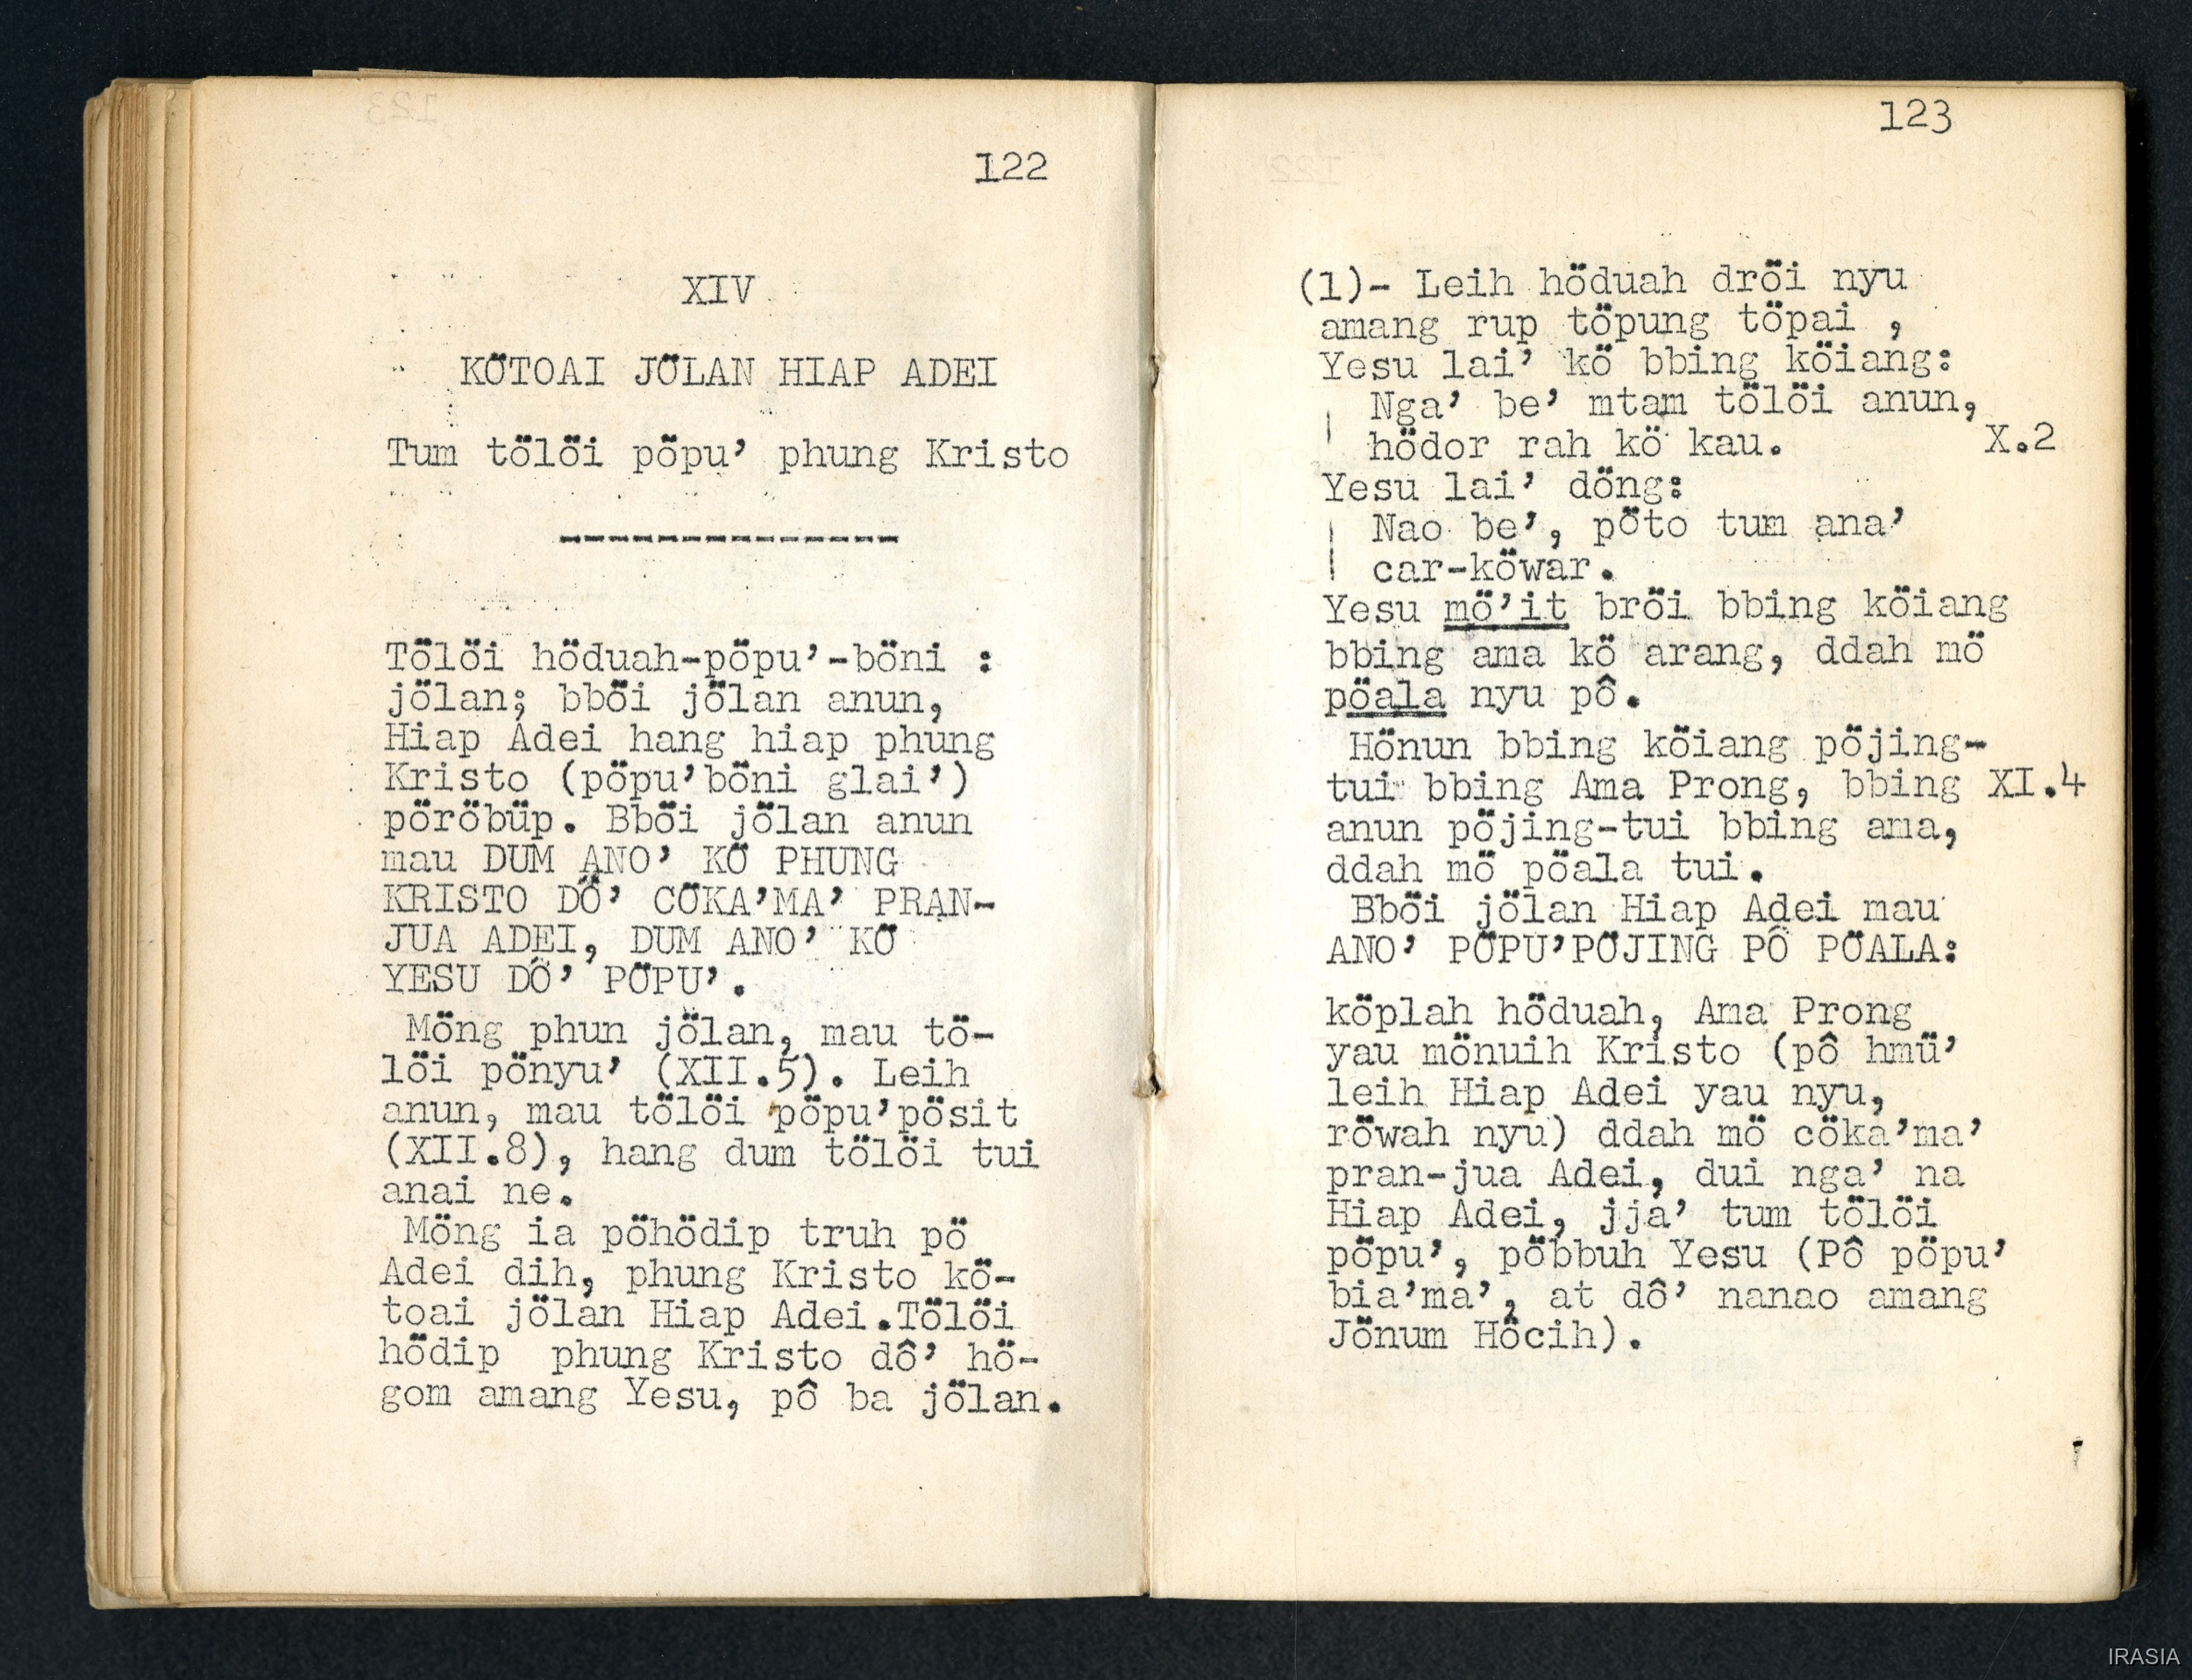 122
XIV
KÖTOAI JÖLAN HIAP ADEI
Tum tölöi pöpu’ phung Kristo
Tölöi höduah-pöpu’-böni :
jölan; bböi jölan anun,
Hiap Adei hang hiap phung
Kristo (pöpu’böni glai’)
pöröbüp. Bböi jölan anun
mau DUM ANO’ KÖ PHUNG
KRISTO DÔ’ CÖKA’MA’ PRAN-
JUA ADEI, DUM ANO’ KÖ
YESU DÔ’ PÖPU’.
Möng phun jölan, mau tö-
löi pönyu’ (XII.5). Leih
anun, mau tölöi pöpu’pösit
(XII.8), hang dum tölöi tui
anai ne.
Möng ia pöhödip truh pö
Adei dih, phung Kristo kö-
toai jölan Hiap Adei.Tölöi
hödip phung Kristo dô’ hö-
gom amang Yesu, pô ba jölan.
123
(1)- Leih höduah dröi nyu
amang rup töpung töpai ,
Yesu lai’ kö bbing köiang:
Nga’ be’ mtam tölöi anun,
hödor rah kö kau. X.2
Yesu lai’ döng:
Nao be’, pöto tum ana’
car-köwar.
Yesu mö’it bröi bbing köiang
bbing ama kö arang, ddah mö
pöala nyu pô.
Hönun bbing köiang pöjing-
tui bbing Ama Prong, bbing XI.4
anun pöjing-tui bbing ama,
ddah mö pöala tui.
Bböi jölan Hiap Adei mau
ANO’ PÖPU’PÖJING PÔ PÖALA:
köplah höduah, Ama Prong
yau mönuih Kristo (pô hmü’
leih Hiap Adei yau nyu,
röwah nyu) ddah mö cöka’ma’
pran-jua Adei, dui nga’ na
Hiap Adei, jja’ tum tölöi
pöpu’, pöbbuh Yesu (Pô pöpu’
bia’ma’, at dô’ nanao amang
Jönum Höcih).
IRASIA